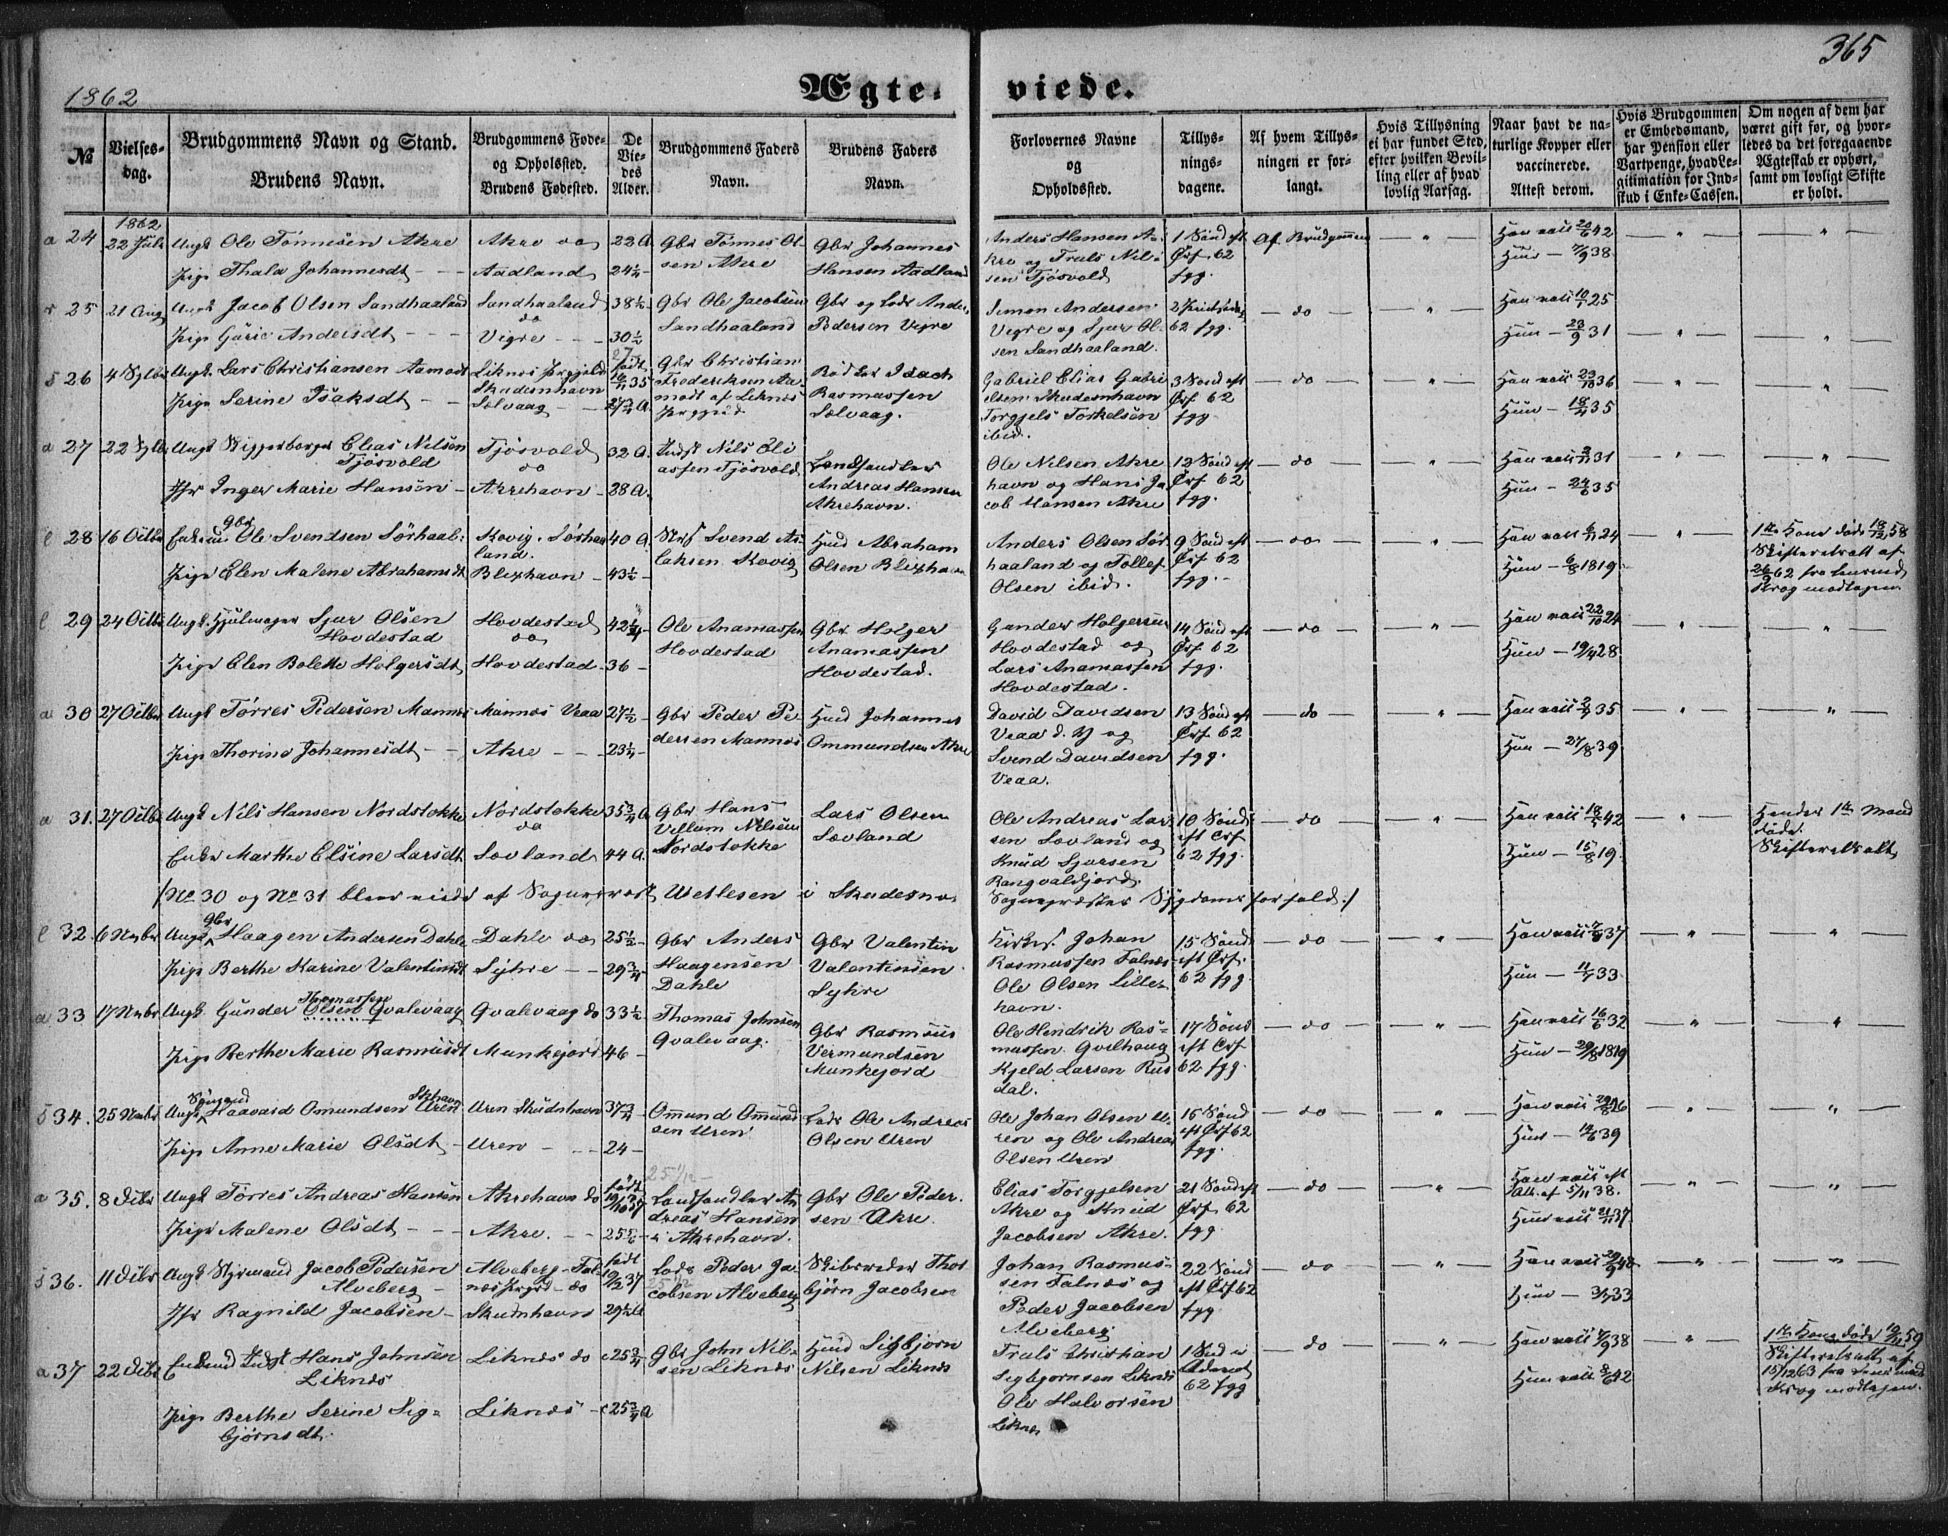 1862
Ægte-
viede.
365
№
Vielses-
dag.
Brudgommens Navn og Stand.
Brudens Navn.
Brudgommens Føde-
og Opholssted.
Brudens Fødested.
De
Vie-
des
Alder.
Brudgommens Faders
Navn.
Brudens Faders
Navn.
Forlovernes Navne
og
Opholdssted.
Tillys-
nings-
dagene.
Af hvem Tillys-
ningen er for-
langt.
Hvis Tillysning
ei har fundet Sted,
efter hvilken Bevil-
ling eller af hvad
lovlig Aarsag.
Naar havt de na-
turlige Kopper eller
vaccinerede.
Attest derom.
Hvis Brudgommen
er Embedsmand,
har Pension eller
Vartpenge, hvad Le-
gitimation for Ind-
skud i Enke-Cassen.
Om nogen af dem har
været gift før, og hvor-
ledes da det foregaaende
Ægteskab er ophørt,
samt om lovligt Skifte
er holdt.
1862
a 24
22 Juli
Ungk Ole Tønnesen Akre
Pige Thala Johannesdt
Akre do
Aadland
22 A.
24¼
Gbr Tønnes Ol-
sen Akre
Gbr Johannes
Hansen Aadland
Anders Hansen A-
kre og Truls Nil-
sen Tjøsvold
1 Sønd eft
Trf 62
fgg.
Af Brudgommen
Hun – 7/9 38
25
21 Aug
Ungk Jacob Olsen Sandhaaland
Pige Gurie Andersdt
Sandhaaland
do
Vigre
38½
30½
Gbr Ole Jacobsen
Sandhaaland
Gbr og Lods Anders
Pedersen Vigre
Simon Andersen
Vigre og Sjur Ol-
sen Sandhaaland.
62 fgg.
do
Hun – 23/9 31
26
Ungk Lars Christiansen Aamodt
Pige Serine Isaksdt
Liknes Prgjeld
Skudesnhavn
Sælvaag
født
16/7 35
27¾ A.
Gbr Christian
Frederiksen Aa-
modt af Liknes
Prggjeld
Isach
Rasmussen
Sælvaag.
Gabriel Elias Gabri
elsen Skudesnhavn
Torgjels Torkelsen
ibid.
3 Sønd eft
Trf 62
fgg.
do
Hun – 18/7 35
a 27
Ungk Skipperborger Elias Nilsen
Tjøsvold
Jfr Inger Marie Hansen
Tjøsvold
do
Akrehavn
32 A.
28 A.
Nils Eli
assen Tjøsvold
Landhandler
Andreas Hansen
Akrehavn.
Ole Nilsen Akre
havn og Hans Ja
cob Hansen Akre
12 Sønd eft
Trf 62
fgg.
do
Hun – 24/6 35
28
16 Octbr
Enkem. Gbr Ole Svendsen Sørhaal-
Pige Elen Malene Abrahamsdt
Kovig. Sørhaa
land.
Blixhavn
40 A.
43½
Svend As
laksen Kovig
Hmd Abraham
Olsen Blixhavn
Anders Olsen Sør
haaland og Tollef
Olsen ibid.
9 Sønd eft
Trf 62
fgg.
do
Hun – 6/8 1819
1te Kone døde 18/12 58
Skifteretsatt. af
26/9 62 fra Lensmd
Krog modtagen
29
24 Octbr
Ungk. Hjulmager Sjur Olsen
Hovdestad
Pige Elen Bolette Holgersdt
Hovdestad
do
Hovdestad
42¼
36
Ole Anamassen
Hovdestad
Gbr Holger
Anamassen
Hovdestad.
Gunder Holgersen
Hovdestad og
Lars Anamassen
Hovdestad.
14 Sønd eft
Trf 62
fgg.
do
Hun – 19/4 28
a 30
27 Octbr
Ungk Tørres Pedersen Mannes
Pige Thorine Johannesdt
Mannes Veaa
Akre
27½
23¼
Gbr Peder Pe
dersen Mannes
Hmd Johannes
Ommundsen Akre
David Davidsen
Veaa d. Y og
Svend Davidsen
Veaa.
13 Sønd eft
Trf 62
fgg.
do
Hun – 27/8 39
a 31.
27 Octbr
Ungk Nils Hansen Nordstokke
Enke Marthe Elsine Larsdt
Nordstokke
do
Sævland
35¾ A
44 A.
Gbr Hans
Villum Nilsen
Nordstokke
Lars Olsen
Sævland
Ole Andreas Lar
sen Sævland og
Knud Sjursen
Rangvaldjord.
10 Sønd
eft Trf
62 fgg.
do
Hun – 15/8 19.
Hendes 1te Mand
døde.
Skifteretsatt
/No 30 og No 31 blev viede af Sogneprest Wetlesen i Skudesnes
Sognepræstens Sygdoms forfald:/
32.
6 Nvbr
Ungk Gbr Haagen Andersen Dahle
Pige Berthe Karine Valentinsdt
Dahle do
Syhre
25½
29¾
Gbr Anders
Haagensen
Dahle
Gbr Valentin
Valentinsen
Syhre
Johan
Rasmussen Falnes
Ole Olsen Lille-
havn.
15 Sønd
eft Trf.
62 fgg.
do
Hun – 11/7 33
a 33
17 Nvbr
Ungk. Gunder Olsen Thomassen Qvalevaag
Pige Berthe Marie Rasmusdt
Qvalevaag do
Munkejord
33½
46
Thomas Johnsen
Qvalevaag.
Gbr Rasmus
Vermundsen
Munkejord
Ole Hendrik Ras-
massen Qvilhaug
Kjeld Larsen Rus
dal.
17 Sønd
eft Trf
62 fgg.
do
Han vacc 16/6 32
Hun – 29/8 1819
34.
25 Nvbr
Ungk Sømand Haavard Omundsen Uren Skhavn
Pige Anne Marie Olsdt
Uren Skudshavn
Uren
37¾
24
Omund Omund
sen Uren
Lods Ole Andreas
Olsen Uren
Ole Johan Olsen U-
ren og Ole Andreas
Olsen Uren
15 Sønd
eft Trf 62
fgg.
do
Hun – 19/6 39
a 35.
8 Dcbr
Ungk Tørres Andreas Hansen
Pige Malene Olsdt
Akrehavn do
Akre.
født
19/10 37
25½
25½
Landhandler An
dreas Hansen
i Akrehavn.
Gbr Ole Peder-
sen Akre.
Elias Torgjelsen
Akre og Knud
Jacobsen Akre.
21 Sønd eft
Trf 62
fgg
do
Han vacc eft
Att. af 5/11 38.
Hun vacc 21/11 37
36.
11 Dcbr
Ungk Styrmand Jacob Pedersen
Alveberg
Jfr Ragnild Jacobsen
Alveberg Fal-
nes Prgjd do
Skudnhavn
født
37
29½
25½
Lods Peder Ja
cobsen Alveberg
Skibsreder Thor
bjørn Jacobsen
Johan Rasmus-
sen Falnes og
Peder Jacobsen
Alveberg.
22 Sønd
eft Trf 62
fgg
do
Hun – 3/7 33
a 37
22 Dcbr
Hans Johnsen
Liknes
Pige Berthe Serine Sig-
bjørnsdt.
Liknes do
Liknes
25¾
25¾ A
Gbr John Nil-
sen Liknes
Hmd Sigbjørn
Nilsen Liknes
Truls Christian
Sigbjørnsen Liknes
Ole Halvorsen
Liknes
1 Sønd i
Advent
62 fgg
do
Han vacc 4/9 38
Hun vacc 8/6 42
1te Kone døde 19/11 59
Skifteretsatt. af
15/12 63 fra Lensmand
Krog modtagen.